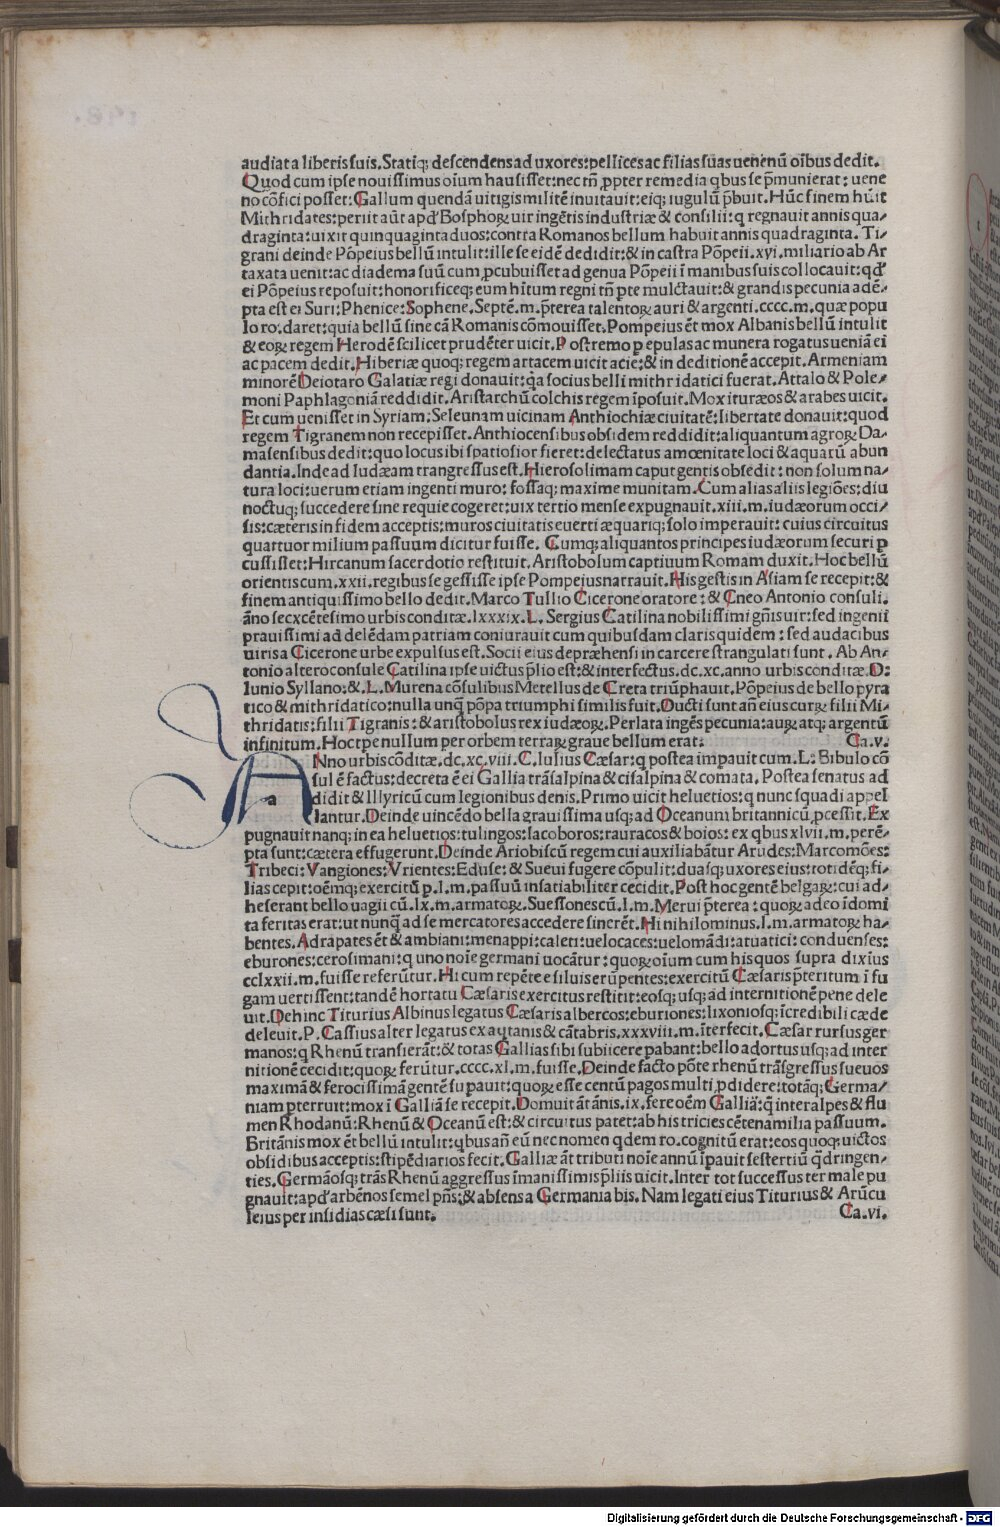 audiat a liberis suis. Statiq; descendens ad uxores: pellices ac filias suas uenenũ oĩbus dedit.
Quod cum ipse nouissimus oĩum hausisset: nec tñ ꝓpter remedia qbus se p̃munierat: uene
no cõfici posset: Gallum quendã uitigis militẽ inuitauit: eiq; iugulũ p̃buit. Hũc finem hũit
Mithridates: periit aũt apđ Bosphoꝝ uir ingẽtis industriæ & consilii: q regnauit annis qua/
draginta: uixit quinquaginta duos: contra Romanos bellum habuit annis quadraginta. Ti/
grani deinde Põpeius bellũ intulit: ille se eidẽ dedidit: & in castra Põpeii .xyi. miliario ab Ar
taxata uenit: ac diadema suũ cum ꝓcubuisset ad genua Põpeii ĩ manibus suis collocauit: qđ
ei Põpeius reposuit: honorificeq; eum hĩtum regni tñ pte mulctauit: & grandis pecunia adẽ/
pta est ei Suri: Phenice: Sophene. Septẽ. m. p̃terea talentoꝝ auri & argenti. cccc. m. quæ popu
lo ro. daret: quia bellũ sine cã Romanis cõmouisset. Pompeius ẽt mox Albanis bellũ intulit
& eoꝝ regem Herodẽ scilicet prudẽter uicit. Postremo ꝑ epulas ac munera rogatus ueniã ei
ac pacem dedit. Hiberiæ quoq; regem artacem uicit acie: & in deditionẽ accepit. Armeniam
minorẽ Deiotaro Galatiæ regi donauit: qa socius belli mithridatici fuerat. Attalo & Pole/
moni Paphlagoniã reddidit. Aristarchũ colchis regem ĩposuit. Mox ituræos & arabes uicit.
Et cum uenisset in Syriam: Seleunam uicinam Anthiochiæ ciuitatẽ: libertate donauit: quod
regem Tigranem non recepisset. Anthiocensibus obsidem reddidit: aliquantum agroꝝ Da/
masensibus dedit: quo locus ibi spatiosior fieret: delectatus amœnitate loci & aquarũ abun
dantia. Inde ad Iudæam trangressus est. Hierosolimam caput gentis obsedit: non solum na/
tura loci: uerum etiam ingenti muro: fossaq; maxime munitam. Cum alias aliis legiões: diu
noctuq; succedere sine requie cogeret: uix tertio mense expugnauit. xiii. m. iudæorum occi/
sis: cæteris in fidem acceptis: muros ciuitatis euerti æquariq; solo imperauit: cuius circuitus
quattuor milium passuum dicitur fuisse. Cumq; aliquantos principes iudæorum securi ꝑ
cussisset: Hircanum sacerdotio restituit. Aristobolum captiuum Romam duxit. Hoc bellũ
orientis cum. xxii. regibus se gessisse ipse Pompeius narrauit. His gestis in Asiam se recepit: &
finem antiquissimo bello dedit. Marco Tullio Cicerone oratore: & Cneo Antonio consuli.
ãno sexcẽtesimo urbis conditæ. lxxxix. L. Sergius Catilina nobilissimi gñis uir: sed ingenii
prauissimi ad delẽdam patriam coniurauit cum quibusdam claris quidem: sed audacibus
uiris a Cicerone urbe expulsus est. Socii eius depræhensi in carcere strangulati sunt. Ab An/
tonio altero consule Catilina ipse uictus p̃lio est: & interfectus. dc. xc. anno urbis conditæ. D:
Iunio Syllano: &. L. Murena cõsulibus Metellus de Creta triũphauit. Põpeius de bello pyra
tico & mithridatico: nulla unq̃ põpa triumphi similis fuit. Ducti sunt añ eius curꝝ filii Mi/
thridatis: filii Tigranis: & aristobolus rex iudæoꝝ. Perlata ingẽs pecunia: auꝝ atq; argentũ
infinitum. Hoc tpe nullum per orbem terraꝝ graue bellum erat: Ca. v.
ANno urbis cõditæ. dc. xc. viii. C. Iulius Cæsar: q postea impauit cum. L: Bibulo cõ
sul ẽ factus: decreta ẽ ei Gallia trãsalpina & cisalpina & comata. Postea senatus ad
a didit & Illyricũ cum legionibus denis. Primo uicit heluetios: q nunc squadi appel
lantur. Deinde uincẽdo bella grauissima usq; ad Oceanum britannicũ ꝓcessit. Ex
pugnauit nanq; in ea heluetios: tulingos: lacoboros: rauracos & boios: ex qbus xlvii. m. perẽ/
pta sunt: cætera effugerunt. Deinde Ariobiscũ regem cui auxiliabãtur Arudes: Marcomões:
Tribeci: Vangiones: Vrientes: Eduse: & Sueui fugere cõpulit: duasq; uxores eius: totidẽq; fi/
lias cepit: oẽmq; exercitũ ꝑ. l. m. passuũ insatiabiliter cecidit. Post hoc gentẽ belgaꝝ: cui ad/
heserant bello uagii cũ. lx. m. armatoꝝ. Suessonescũ. l. m. Merui p̃terea: quoꝝ adeo ĩdomi
ta feritas erat: ut nunq̃ ad se mercatores accedere sinerẽt. Hi nihilominus. l. m. armatoꝝ ha/
bentes. Adrapates ẽt & ambiani: menappi: caleti: uelocaces: uelomãdi: atuatici: conduenses:
eburones: cerosimani: q uno noĩe germani uocãtur: quoꝝ oĩum cum his quos supra dixĩus
cclxxii. m. fuisse referũtur. Hi cum repẽte e siluis erũpentes: exercitũ Cæsaris p̃teritum ĩ fu
gam uertissent: tandẽ hortatu Cæsaris exercitus restitit: eosq; usq; ad internitionẽ pene dele
uit. Dehinc Titurius Albinus legatus Cæsaris albercos: eburiones: lixoniosq; ĩcredibili cæde
deleuit. P. Cassius alter legatus ex aqtanis & cãtabris. xxxviii. m. ĩterfecit. Cæsar rursus ger
manos: q Rhenũ transierãt: & totas Gallias sibi subiicere pabant: bello adortus usq; ad inter
nitionẽ cecidit: quoꝝ ferũtur. cccc. xl. m. fuisse. Deinde facto põte rhenũ trãsgressus sueuos
maximã & ferocissimã gentẽ supauit: quoꝝ esse centũ pagos multi ꝓdidere: totãq; Germa/
niam ꝑterruit: mox ĩ Galliã se recepit. Domuit ãt ãnis. ix. fere oẽm Galliã: q̃ inter alpes & flu
men Rhodanũ: Rhenũ & Oceanũ est: & circuitus patet: ab his tricies cẽtena milia passuum.
Britãnis mox ẽt bellũ intulit: qbus añ eũ nec nomen qdem ro. cognitũ erat: eos quoq; uictos
obsidibus acceptis: stipẽdiarios fecit. Galliæ ãt tributi noĩe annũ ĩpauit sestertiũ q̃dringen/
ties. Germãosq; trãs Rhenũ aggressus ĩmanissimis p̃liis uicit. Inter tot successus ter male pu
gnauit: apđ arbẽnos semel pñs: & absens a Germania bis. Nam legati eius Titurius & Arũcu
leius per insidias cæsi sunt. Ca. vi.
Digitalisierung gefördert durch die Deutsche Forschungsgemeinschaft - DFG